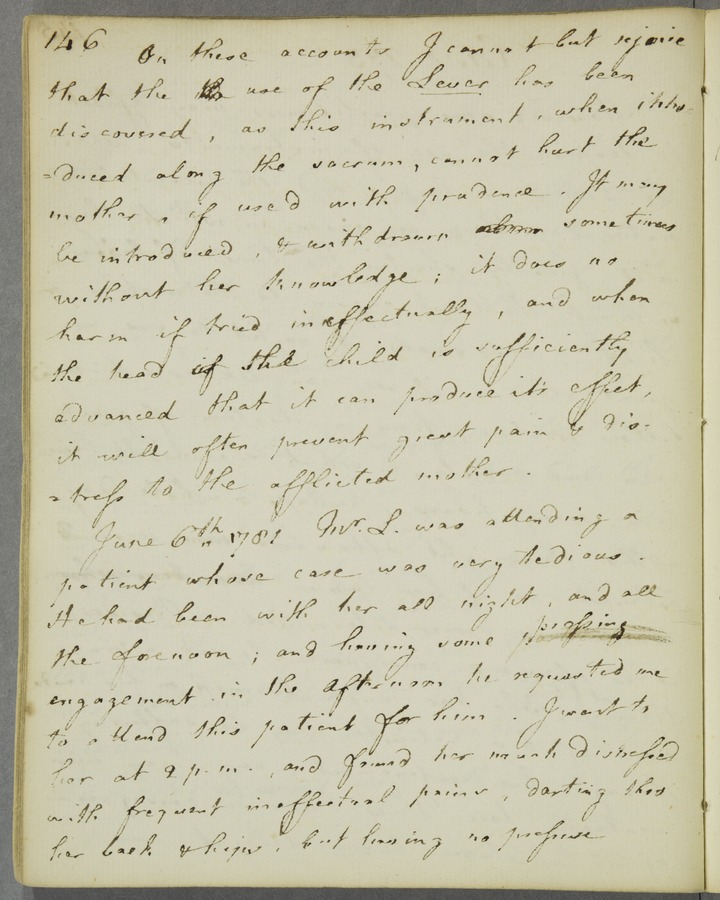 146 On these accounts I cannot but rejoice
that the use of the Lever has been
discovered, as this instrument, when intro-
=duced along the sacrum, cannot hurt the
mother, if used with prudence. It may
be introduced, & withdrawn sometimes
without her knowledge; it does no
harm if tried ineffectually, and when
the head of the child is sufficiently
advanced that it can produce its effect,
it will often prevent great pain & dis-
=tress to the afflicted mother.
June 6th 1781 Mr. L. was attending a
patient whose case was very tedious.
He had been with her all night, and all
the forenoon; and having some pressing
engagement in the afternoon he requested me
to attend this patient for him. I went to
her at 2 p.m., and found her much distressed
with frequent ineffectual pains, darting thro
her back & hips, but having no pressure